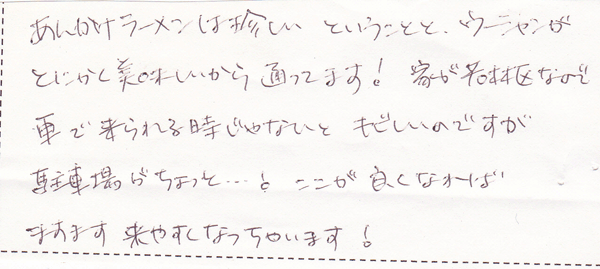 あんかけラーメンは珍しい ということと、ウーシャンが
とにかく美味しいから 通ってます! 家が若林区なので
車で来られる時じゃないと きびしいのですが
駐車場がちょっと…! ここが良くなれば
ますます 来やすくなっちゃいます!